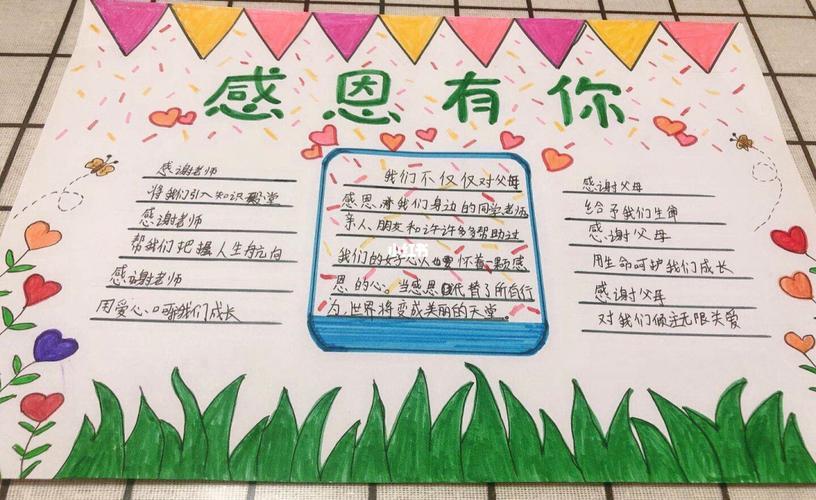 感恩有你
感谢老师
将我们引入知识殿堂
感谢老师
帮我们把握人生航向
感谢老师
用爱心呵护我们成长
我们不仅仅对父母
感恩,对我们身边的同学老师
亲人、朋友和许许多多帮助过
我们的好心人也要怀着一颗感
恩的心。当感恩代替了所有行
为,世界将变成美丽的天堂。
小红书
感谢父母
给予我们生命
感谢父母
用生命呵护我们成长
感谢父母
对我们倾注无限关爱